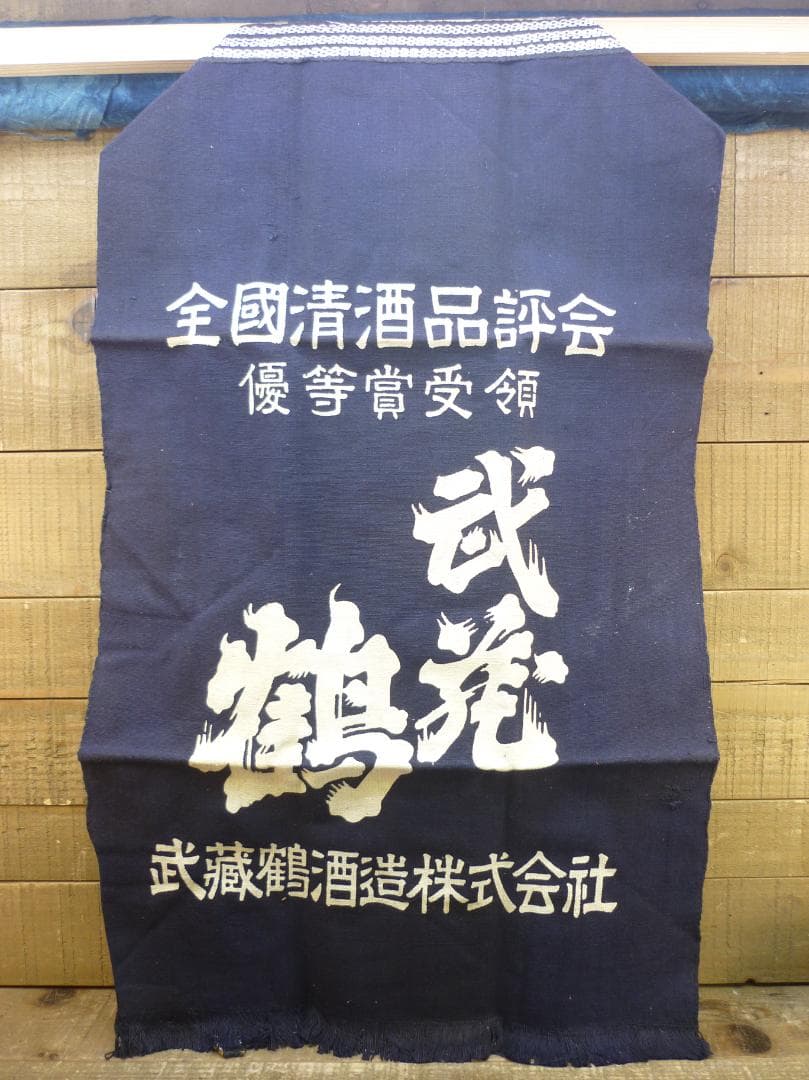 全國清酒品評会
優等賞受領
武蔵
鶴
武藏鶴酒造株式会社